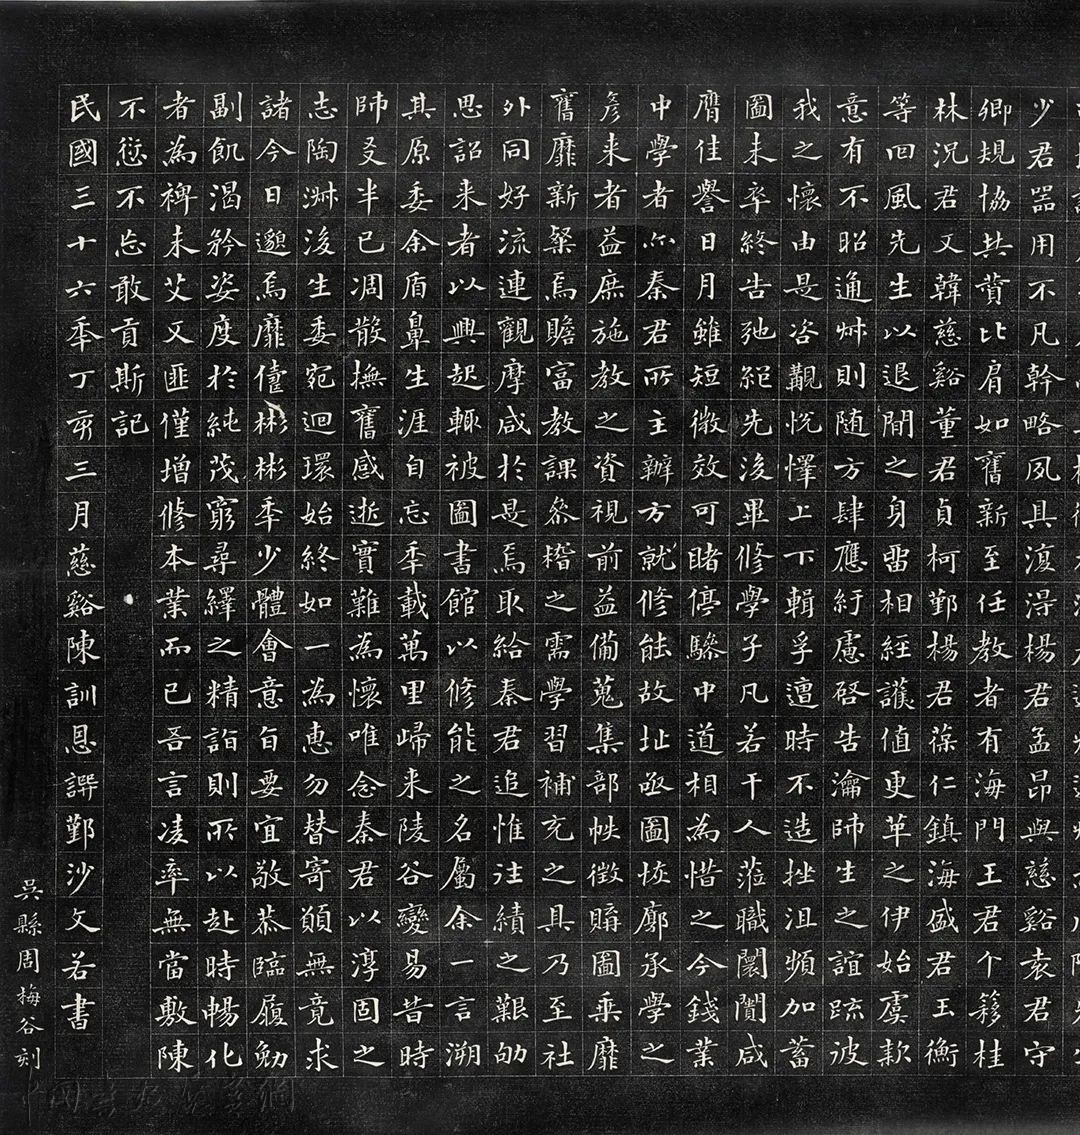 少君器用不凡幹略夙具復得楊君孟昂與慈谿袁君守
卿規恊共賛比肩如舊新至任教者有海門王君个簃桂
林況君又韓慈谿董君貞柯鄞楊君葆仁鎮海盛君王衡
等回風先生以退閒之身畱相經護值更革之伊始虞欵
意有不昭通艸則随方肆應紓慮啓告瀹師生之誼疏彼
我之懷由是咨覯悦懌上下輯孚遭時不造挫沮頻加蓄
圖未卒終告弛絕先後畢修學子凡若干人蒞職闤闠咸
膺佳譽日月雖短微效可睹停驂中道相為惜之今錢業
中學者尒秦君所主辦方就修能故址亟圖恢廓承學之
彥来者益庶施教之資視前益備蒐集部帙徵購圖乘靡
舊靡新粲焉贍富教課叅稽之需學習補充之具乃至社
外同好流連觀摩咸於是焉取給秦君追惟往績之艱劬
思詔来者以興起輙被圖書館以修能之名屬余一言溯
其原委余盾鼻生涯自忘年載萬里歸来陵谷變易昔時
師友半已凋散撫舊感逝實難為懷唯念秦君以淳固之
志陶淑後生委宛迴環始終如一為惠勿替寄願無竟求
諸今日邈焉靡儓彬彬年少體會意旨要宜敬恭臨履勉
副飢渴矜姿度於純茂窮尋繹之精詣則所以赴時暢化
者為裨未艾又匪僅增修本業而已吾言淩率無當敷陳
不愆不忘敢貢斯記
民國三十六年丁亥三月慈谿陳訓恩譔鄞沙文若書
吳縣周梅谷刻